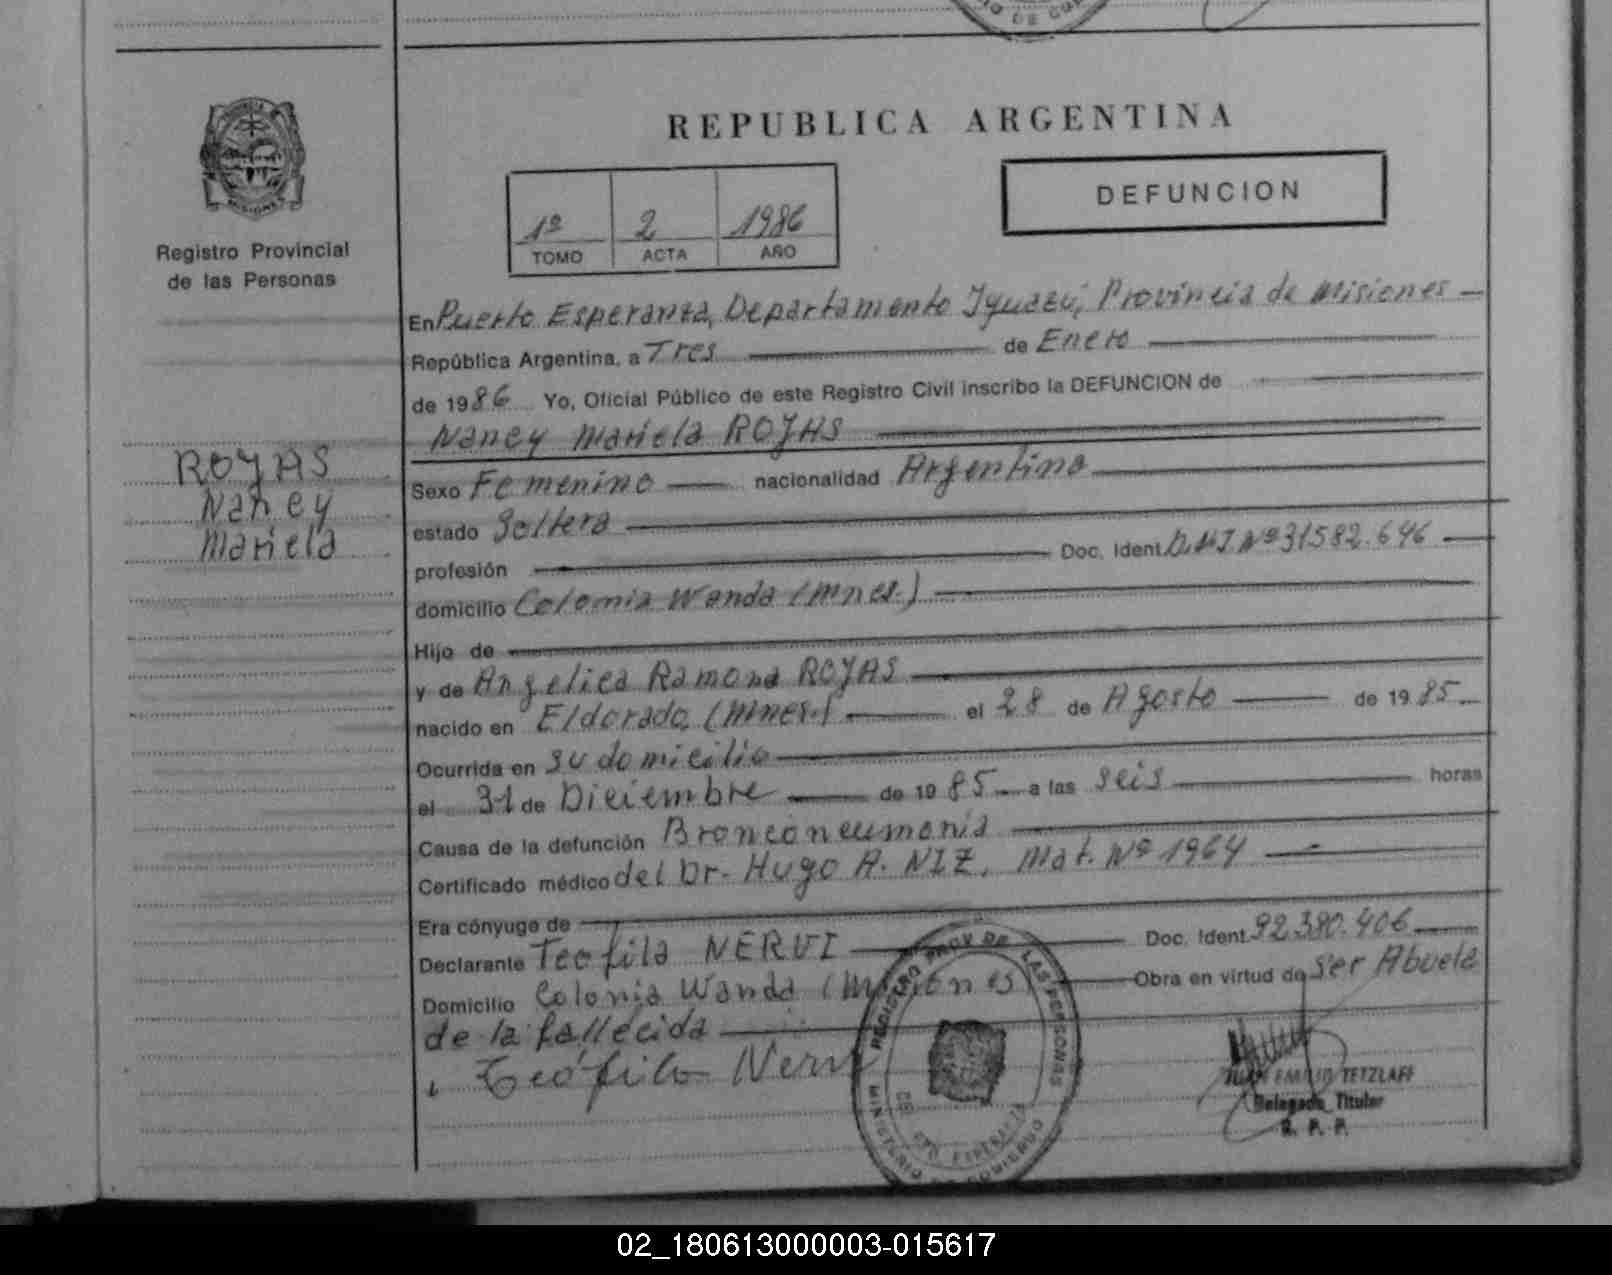 REPUBLICA ARGENTINA
DEFUNCION
1º 2 1986
TOMO ACTA AÑO
PROVINCIA
MISIONES
Registro Provincial
de las Personas
ROJAS
Nancy
Mariela
En Puerto Esperanza, Departamento Iguazú, Provincia de Misiones
República Argentina, a Tres de Enero
de 1986 Yo, Oficial Público de este Registro Civil inscribo la DEFUNCION de
Nancy Mariela ROJAS
Sexo Femenino nacionalidad Argentina
estado Soltera
profesión Doc. Ident. D.N.I. Nº 31582.646
domicilio Colonia Wanda (Mnes.)
Hijo de
y de Angelica Ramona ROJAS
nacido en Eldorado, (Mnes.) el 28 de Agosto de 1985
Ocurrida en su domicilio
el 31 de Diciembre de 1985 a las seis horas
Causa de la defunción Bronconeumonia
Certificado médico del Dr. Hugo A. NIZ, Mat. Nº 1964
Era cónyuge de
Declarante Teofila NERVI Doc. Ident. 92.380.406
Domicilio Colonia Wanda (Misiones) Obra en virtud de ser Abuela
de la fallecida
Teófila Nervi
REGISTRO PROV. DE LAS PERSONAS
MINISTERIO DE GOBIERNO
PTO ESPERANZA
JUAN EMILIO TETZLAFF
Delegado Titular
R. P. P.
02_180613000003-015617